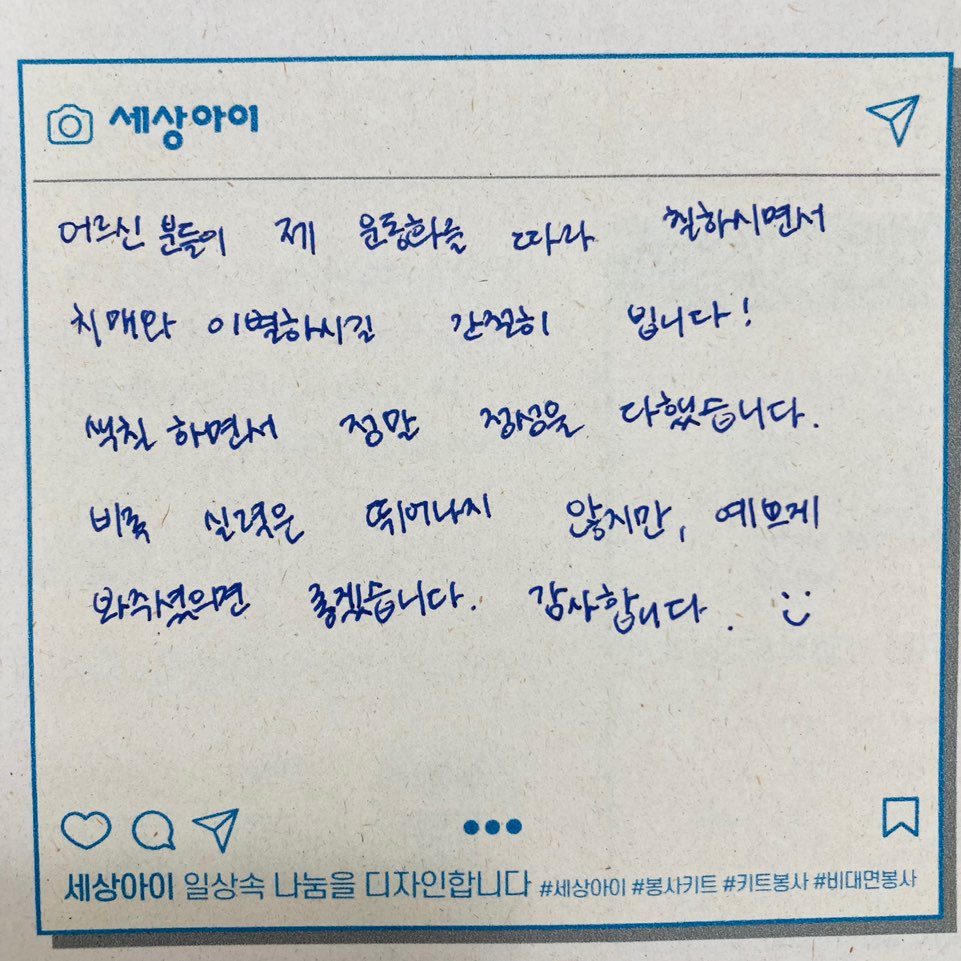 세상아이
어르신 분들이 제 운동화을 따라 칠하시면서
치매와 이별하시길 간절히 빕니다!
색칠 하면서 정말 정성을 다했습니다.
비록 실력은 뛰어나지 않지만, 예쁘게
봐주셨으면 좋겠습니다. 감사합니다. :)
세상아이 일상속 나눔을 디자인합니다 #세상아이 #봉사키트 #키트봉사 #비대면봉사